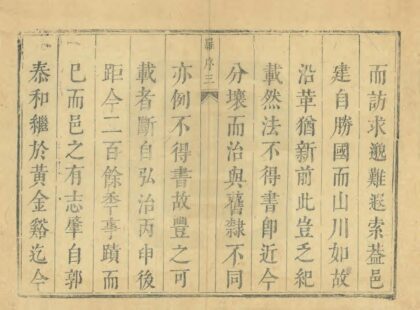 而訪求邈難遐索葢邑
建自勝國而山川如故
沿革猶新前此豈乏紀
載然法不得書卽近今
分壤而治與舊隸不同
羅序三
亦例不得書故豐之可
載者斷自弘治丙申後
距今二百餘季事蹟而
已而邑之有志肇自郭
泰和繼於黃金谿迄今